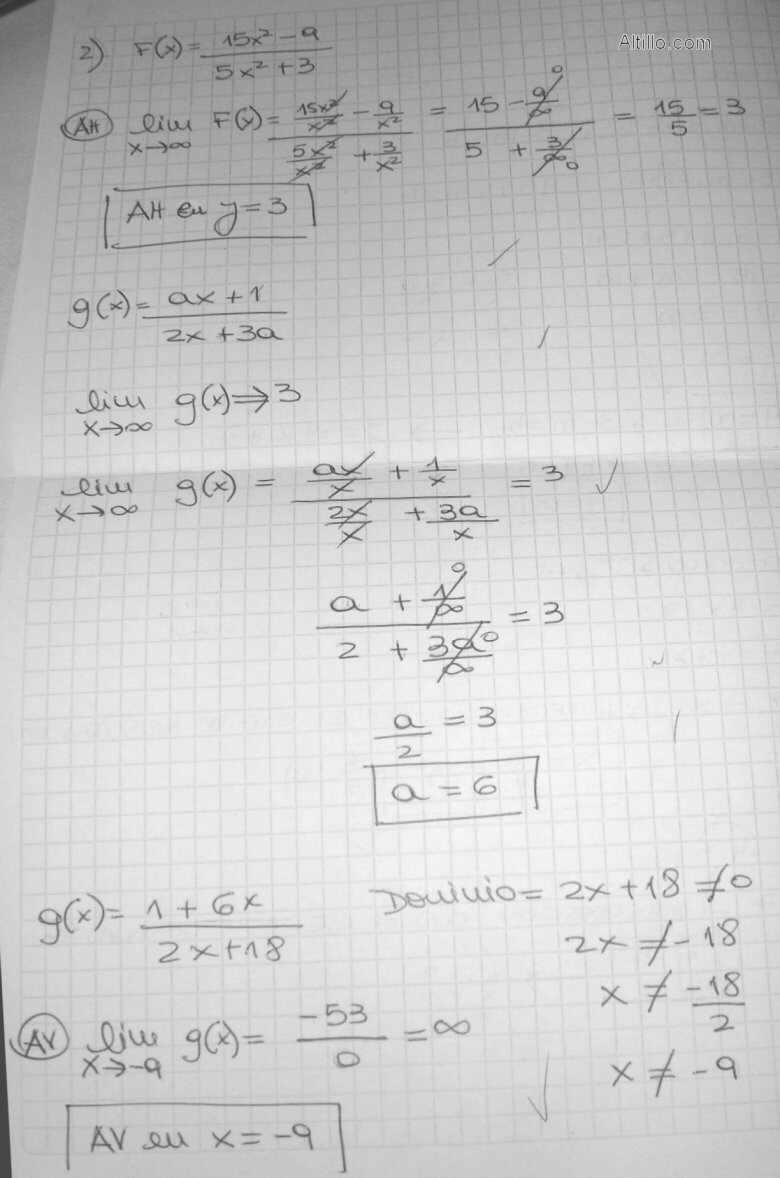 Altillo.com
2) F(x) = (15x² - 9)/(5x² + 3)
AH lim x→∞ F(x) = (15x²/x² - 9/x²)/(5x²/x² + 3/x²) = (15 - 9/∞ 0)/(5 + 3/∞ 0) = 15/5 = 3
AH en y = 3
g(x) = (ax + 1)/(2x + 3a)
lim x→∞ g(x) ⇒ 3
lim x→∞ g(x) = (ax/x + 1/x)/(2x/x + 3a/x) = 3 ✓
(a + 1/∞ 0)/(2 + 3a/∞ 0) = 3
a/2 = 3
a = 6
g(x) = (1 + 6x)/(2x + 18)
Dominio = 2x + 18 ≠ 0
2x ≠ -18
x ≠ -18/2
x ≠ -9
AV lim x→-9 g(x) = -53/0 = ∞ ✓
AV en x = -9